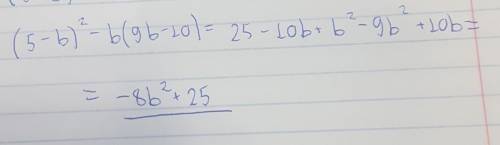 (5-b)²-b(9b-10)= 25-10b+b²-9b²+10b=
= -8b²+25